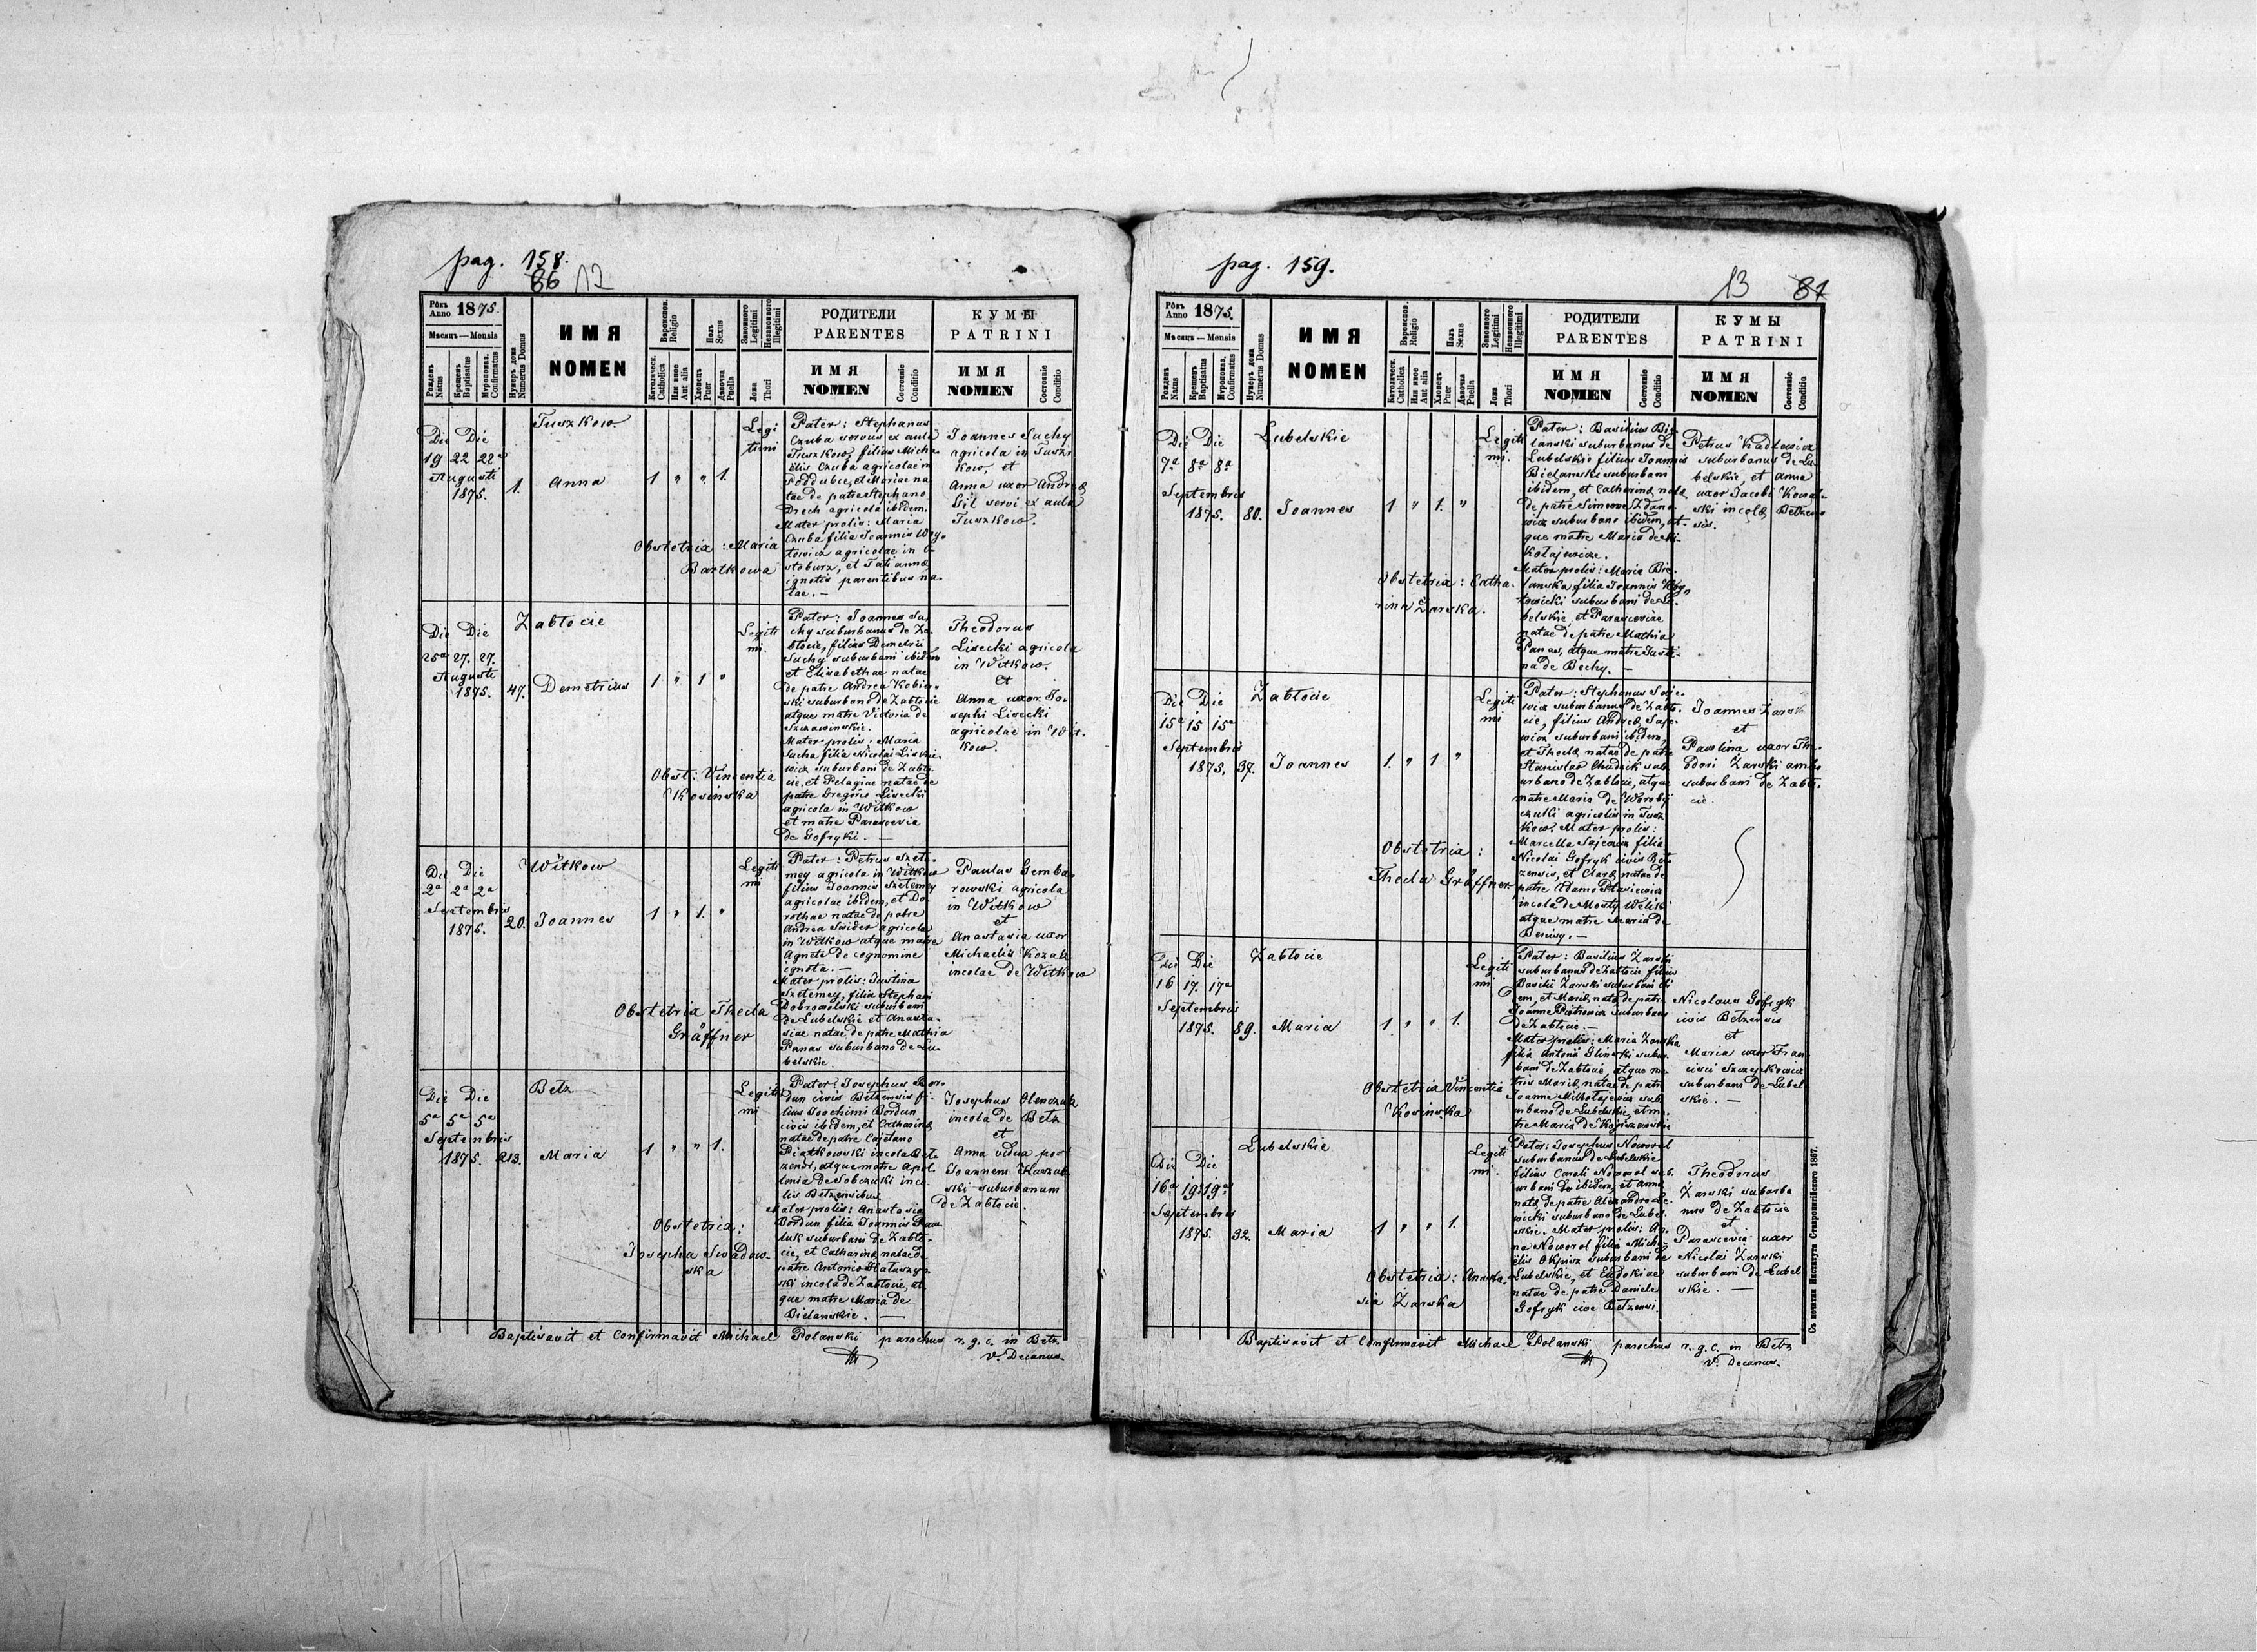 pag. 158.
86 12
Рôкъ Anno 1875.
Мѣсяцъ — Mensis
Рожденъ Natus
Крещенъ Baptisatus
Мѵропомаз. Confirmatus
Нумеръ дома Numerus Domus
ИМЯ
NOMEN
Вѣроиспов. Religio
Католическ. Catholica
Или иное Aut alia
Полъ Sexus
Хлопецъ Puer
Дѣвочка Puella
Законного Legitimi
Незаконного Illegitimi
Ложа Thori
РОДИТЕЛИ
PARENTES
ИМЯ
NOMEN
Состояніе Conditio
КУМЫ
PATRINI
ИМЯ
NOMEN
Состояніе Conditio
Tuszkow
Die Die
19 22 22a
Augusti
1875. 1. Anna 1 " " 1.
Legi
timi
Pater: Stephanus
Czuba servus ex aula
Tuszkow, filius Micha
elis Czuba agricolae in
Poddubce, et Mariae na
tae de patre Stephano
Drech agricola ibidem.
Mater prolis: Maria
Czuba filia Joannis Woy
towicz agricolae in O-
stoburz, et Tatiannae
ignotis parentibus na-
tae. —
Joannes Suchy
agricola in Tusz-
kow, et
Anna uxor Andreae
Gil servi ex aula
Tuszkow.
Obstetrix: Maria
Bartkowa
Zabłocie
Die Die
25a 27. 27.
Augusti
1875. 47. Demetrius 1 " 1 "
Legiti
mi.
Pater: Joannes Su
chy suburbanus de Za-
błocie, filius Demetrii
Suchy suburbani ibidem
et Elisabethae natae
de patre Andrea Kobier-
ski suburbano de Zabłocie
atque matre Victoria de
Szczawinskie.
Mater prolis: Maria
Sucha filia Nicolai Liskie
wicz suburbani de Zabło-
cie, et Pelagiae natae de
patre Gregorio Lisecki
agricola in Witkow
et matre Parascevia
de Gofryki. —
Theodorus
Lisecki agricola
in Witkow.
et
Anna uxor Jo-
sephi Lisecki
agricolae in Wit-
kow.
Obst: Vincentia
Kosinska
Witkow
Die Die
2a 2a 2a
Septembris
1875. 20. Joannes 1 " 1. "
Legiti
mi
Pater: Petrus Szete-
mey agricola in Witkow
filius Joannis Szetemey
agricolae ibidem, et Do-
rothae natae de patre
Andrea Swider agricola
in Witkow atque matre
Agnete de cognomine
ignota. —
Mater prolis: Justina
Szetemey, filia Stephani
Dobrowolski suburbani
de Lubelskie et Anasta-
siae natae de patre Mathia
Panas suburbano de Lu-
belskie.
Paulus Gemba-
rowski agricola
in Witkow
et
Anastasia uxor
Michaelis Kozak
incolae de Witkow
Obstetrix Thecla
Gräffner
Betz
Die Die
5a 5a 5a
Septembris
1875. 213. Maria 1 " " 1.
Legiti
mi
Pater: Josephus Bor-
dun civis Betzensis fi-
lius Joachimi Bordun
civis ibidem, et Catharinae
natae de patre Cajetano
Piątkowski incola Bet-
zensi, atque matre Apol-
lonia de Sobczuki inco-
lis Betzensibus.
Mater prolis: Anastasia
Bordun filia Joannis Paw
luk suburbani de Zabło-
cie, et Catharinae natae de
patre Antonio Hałuszyn-
ski incola de Zabłocie, at-
que matre Maria de
Bielanskie. —
Josephus Olenczuk
incola de Betz
et
Anna vidua post
Joannem
ski suburbanum
de Zabłocie.
Obstetrix:
Josepha Swadow-
ska
Baptisavit et Confirmavit Michael Polanski parochus r. g. c. in Betz
V. Decanus.
pag. 159.
13 87
Рôкъ Anno 1875.
Мѣсяцъ — Mensis
Рожденъ Natus
Крещенъ Baptisatus
Мѵропомаз. Confirmatus
Нумеръ дома Numerus Domus
ИМЯ
NOMEN
Вѣроиспов. Religio
Католическ. Catholica
Или иное Aut alia
Полъ Sexus
Хлопецъ Puer
Дѣвочка Puella
Законного Legitimi
Незаконного Illegitimi
Ложа Thori
РОДИТЕЛИ
PARENTES
ИМЯ
NOMEN
Состояніе Conditio
КУМЫ
PATRINI
ИМЯ
NOMEN
Состояніе Conditio
Lubelskie
Die Die
7a 8a 8a
Septembris
1875. 80. Joannes 1 " 1. "
Legiti
mi.
Pater: Basilius Bie-
lanski suburbanus de
Lubelskie filius Joannis
Bielanski suburbani
ibidem, et Catharinae natae
de patre Simeone Zdano-
wicz suburbano ibidem, at-
que matre Maria de Mi-
kołajewicze.
Mater prolis: Maria Bie-
lanska filia Joannis Woy
towicki suburbani de Lu-
belskie, et Parasceviae
natae de patre Mathia
Panas, atque matre Justi-
na de Bechy. —
Petrus Kadłowicz
suburbanus de Lu-
belskie, et Anna
uxor Jacobi Kowal-
ski incolae Betzen-
sis.
Obstetrix: Catha-
rina Żarska.
Zabłocie
Die Die
15a 15 15a
Septembris
1875. 37. Joannes 1. " 1 "
Legiti
mi
Pater: Stephanus Saje-
wicz suburbanus de Zabło-
cie, filius Andreae Saje-
wicz suburbani ibidem,
et Theclae natae de patre
Stanislao Chudzik sub-
urbano de Zabłocie, atque
matre Maria de Worobij
czuki agricolis in Tusz
kow. Mater prolis:
Marcella Sajewicz filia
Nicolai Gofryk civis Bet-
zensis, et Clarae natae de
patre Adamo Ptasiewicz
incola de Mosty Welikie
atque matre Maria de
—
Joannes Żarski
et
Paulina uxor The-
odori Żarski ambo
suburbani de Zabło-
cie.
Obstetrix:
Thecla Gräffner
Zabłocie
Die Die
16 17. 17a
Septembris
1875. 89. Maria 1. " " 1.
Legiti
mi
Pater: Basilius Żarski
suburbanus de Zabłocie filius
Basilii Żarski suburbani ibi
dem, et Mariae natae de patre
Joanne Piotrowicz suburbano
de Zabłocie. —
Mater prolis: Maria Żarska
filia Antonii Glinski subur-
bani de Zabłocie, atque ma-
tris Mariae natae de patre
Joanne Mikołajewicz sub
urbano de Lubelskie, et ma-
tre Maria de
Nicolaus Gofryk
civis Betzensis
et
Maria uxor Fran
cisci Szczepkowicz
suburbani de Lubel
skie. —
Obstetrix Vincentia
Kosinska
Lubelskie
Die Die
16a 19a 19a
Septembris
1875. 32. Maria 1 " " 1.
Legiti
mi.
Pater: Josephus Noworol
suburbanus de Lubelskie
filius Caroli Noworol sub-
urbani ibidem, et Annae
natae de patre Alexandro Le-
wicki suburbano de Lubel-
skie. Mater prolis: An-
na Noworol filia Micha-
elis Okpisz suburbani de
Lubelskie, et Eudokiae
natae de patre Daniele
Gofryk cive Betzensi.
Theodorus
Żarski suburba
nus de Zabłocie
et
Parascevia uxor
Nicolai Żarski
suburbani de Lubel
skie. —
Obstetrix: Anasta-
sia Żarska
Baptisavit et Confirmavit Michael Polanski parochus r. g. c. in Betz
V. Decanus.
Съ печатни Института Ставропигійского 1867.